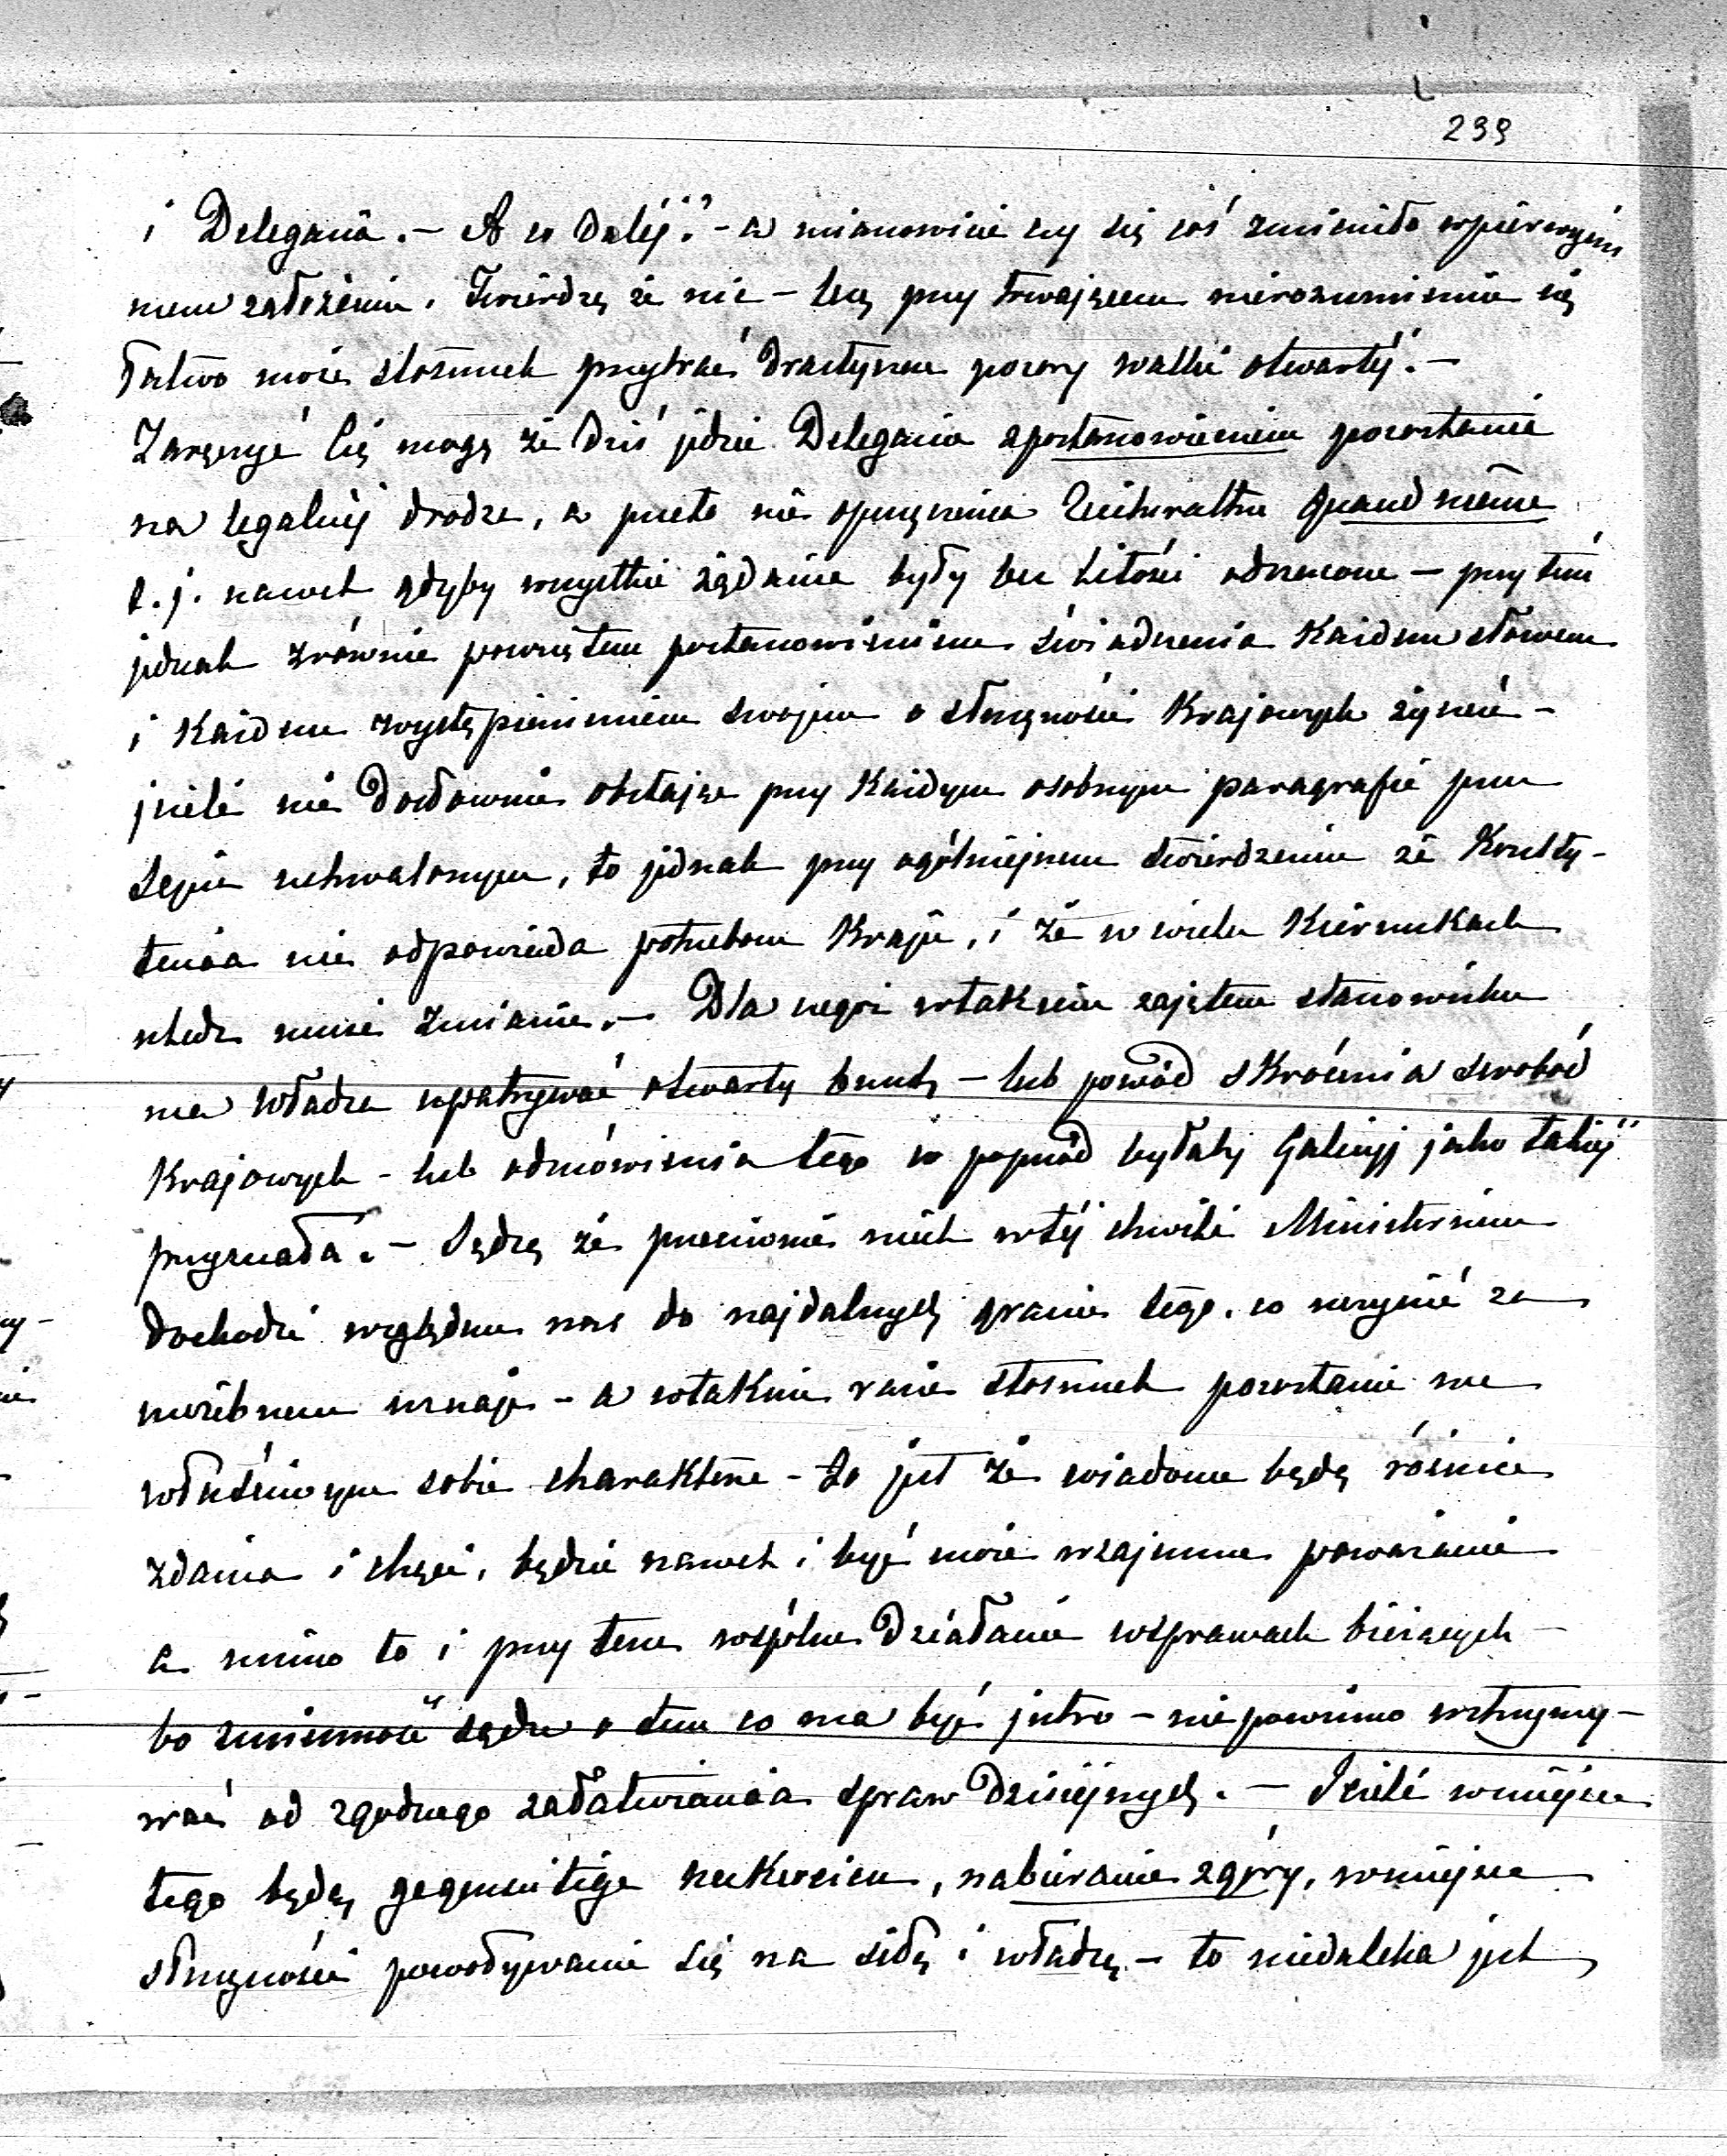 239
i Delegacia. — A co daléj? - a mianowicie czy się coś zmieniło w pierwszém
mem założeniu. Twierdzę że nie — lecz przy trwającem nierozumieniu się
łatwo może stosunek przybrać drastyczne pozory walki otwartéj. —
Zaręczyć Cię mogę że dziś jedzie Delegacia z postanowieniem pozostania
na legalnéj drodze, a przeto nie opuszczenia Reichsrathu quand même
t. j. nawet gdyby wszystkie żądania były bez litości odrzucone — przy tém
jednak zrównie powziętem postanowieniem świadczenia każdem słowem
i każdem wystąpieniem swojem o słuszności krajowych życzeń -
jeżeli nie dosłownie obstając przy każdym osobnym paragrafie przez
Sejm uchwalonym, to jednak przy ogólniejszem twierdzeniu że Konsty-
tucia nie odpowiada potrzebom Kraju, i że w wielu kierunkach
uledz musi zmianie. — Dla czegoż w takiem zajętem stanowisku
ma władza upatrywać otwarty bunt — lub powód skrócenia swobód
Krajowych - lub odmówienia tego co poprzód byłaby Galicyj jako takiéj
przyznała. — Sądzę że przeciwnie niech w téj chwili Ministerium
dochodzi względem nas do najdalszych granic tego, co uczynić za
możebnem uznaje - a w takim razie stosunek pozostanie we
właściwym sobie charakterze - to jest że wiadome będą różnice
zdania i chęci, będzie nawet i być może wzajemne poważanie
a mimo to i przy tem wspólne działanie w sprawach bieżących —
bo zmienność sądu o tem co ma być jutro — nie powinno wstrzymy-
wać od zgodnego załatwiania spraw dzisiejszych. — Jeżeli w miejsce
tego będą gegenseitige, nabieranie z góry, w miejsce
słuszności powoływanie się na siłę i władzę — to niedaleka jest